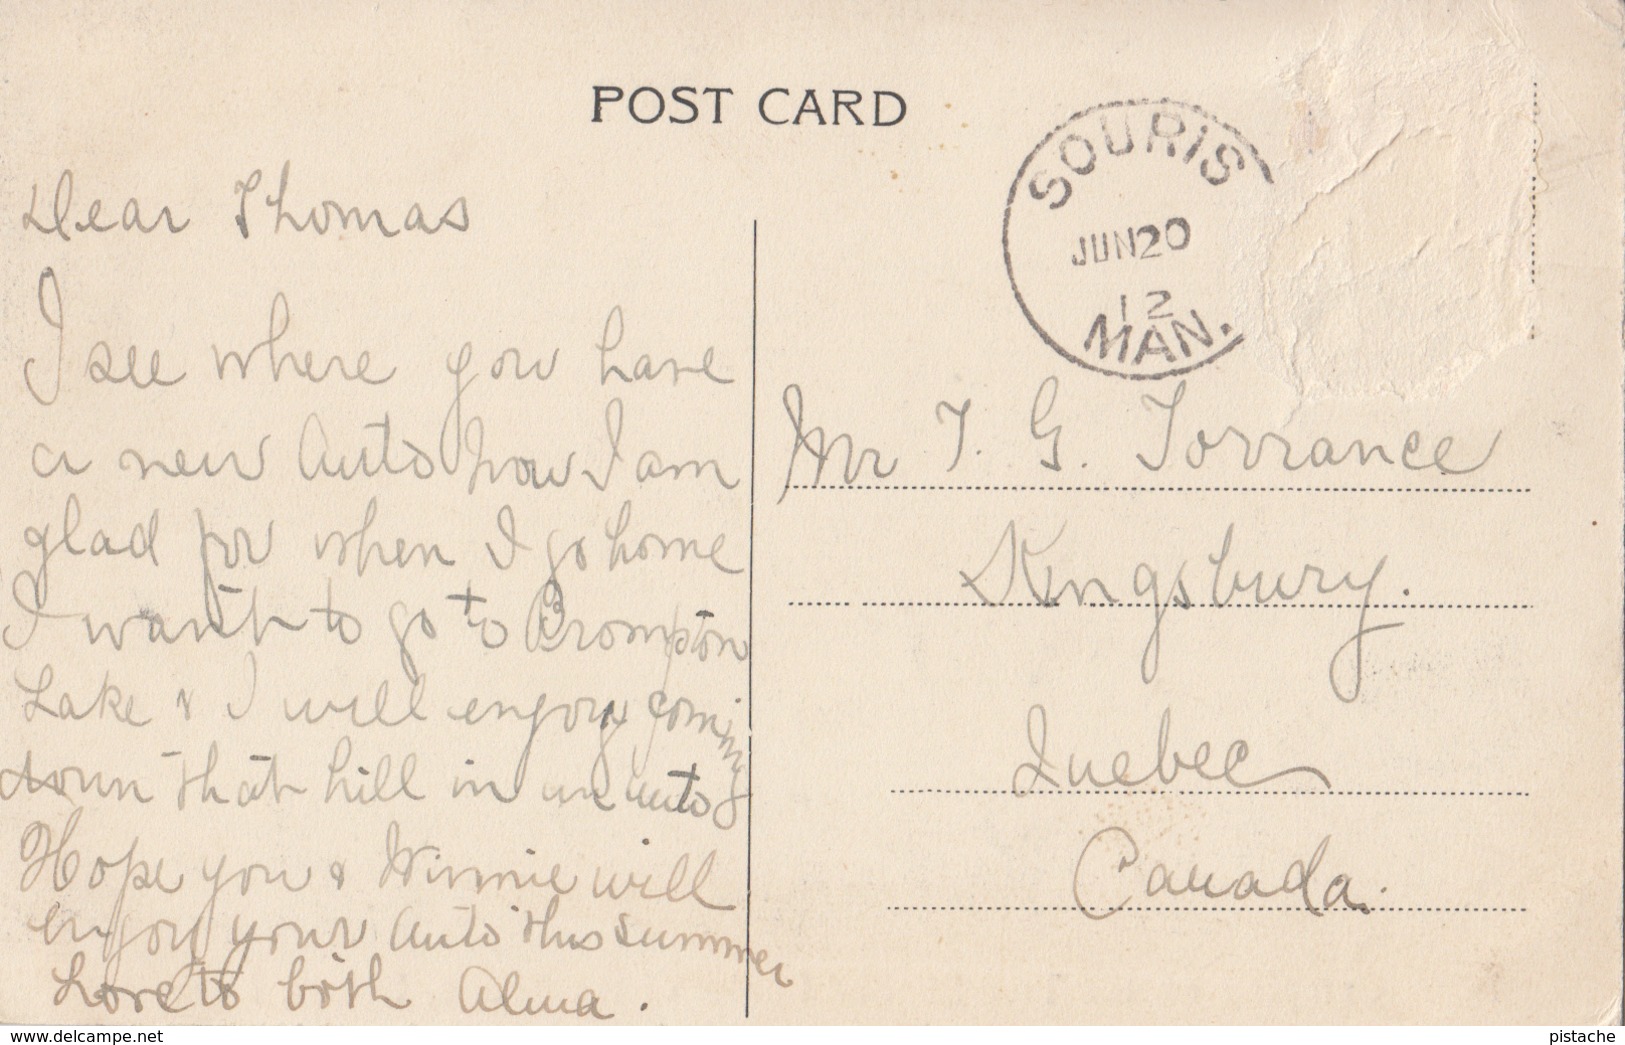 POST CARD
SOURIS
JUN 20
12
MAN.
Dear Thomas
I see where you have
a new Auto how I am
glad for when I go home
I want to go to Brompton
Lake & I will enjoy coming
down that hill in an auto
Hope you & Winnie will
enjoy your auto this summer
Love to both Alma.
Mr T. G. Torrance
Kingsbury.
Quebec
Canada.
www.delcampe.net
pistache